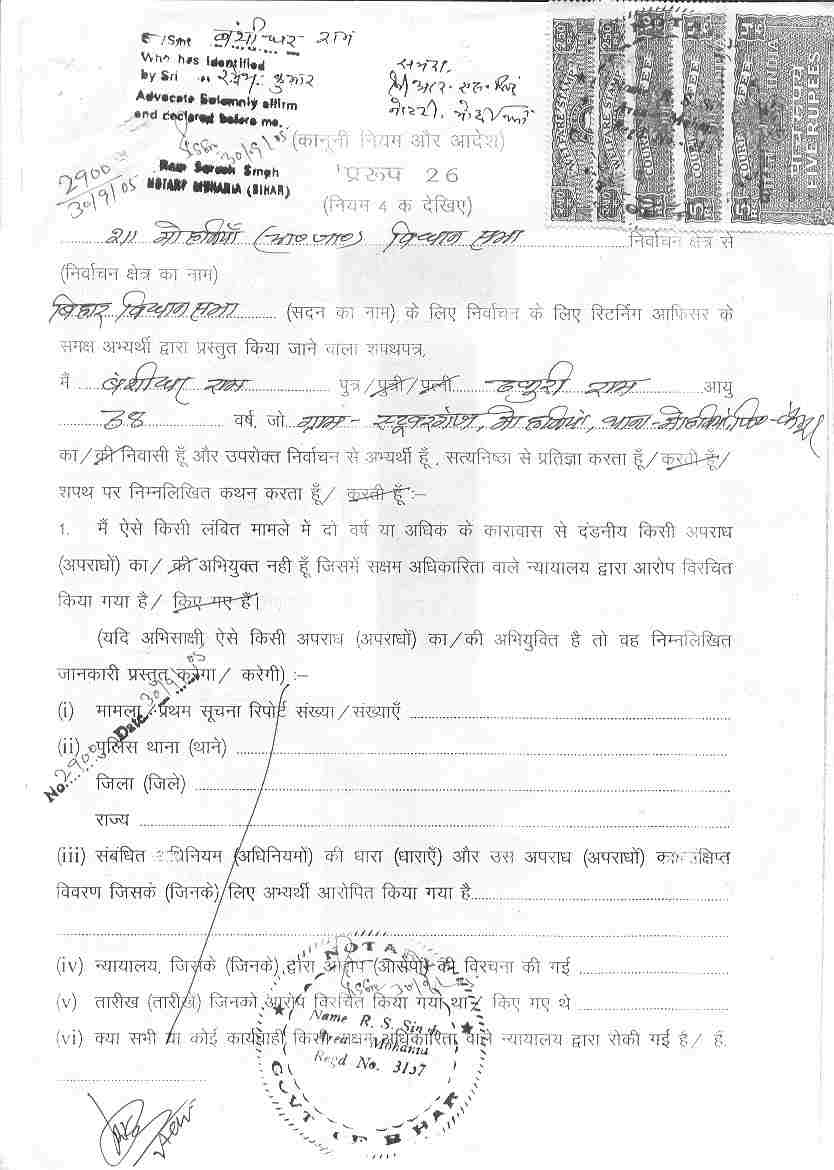 S/Sme बंशीधर राम
Who has identified
by Sri .. कुमार
Advocate Solemnly affirm
and declared before me.
30/9/05
Ram Suresh Singh
NOTARY MOHANIA (BIHAR)
2900
30/9/05
समक्ष,
COURT FEE
INDIA
FIVE RUPEES
(कानूनी नियम और आदेश)
प्ररूप 26
(नियम 4 क देखिए)
211 मोहनियाँ (अ०जा०) विधान सभा निर्वाचन क्षेत्र से
(निर्वाचन क्षेत्र का नाम)
बिहार विधान सभा (सदन का नाम) के लिए निर्वाचन के लिए रिटर्निग आफिसर के
समक्ष अभ्यर्थी द्वारा प्रस्तुत किया जाने वाला शपथपत्र,
मैं बंशीधर राम पुत्र/पुत्री/पत्नी राम आयु
38 वर्ष, जो ग्राम - मोहनियाँ, थाना-मोहनियाँ,
का/की निवासी हूँ और उपरोक्त निर्वाचन से अभ्यर्थी हूँ, सत्यनिष्ठा से प्रतिज्ञा करता हूँ/करती हूँ/
शपथ पर निम्नलिखित कथन करता हूँ/ करती हूँ :–
1. मैं ऐसे किसी लंबित मामले में दो वर्ष या अधिक के कारावास से दंडनीय किसी अपराध
(अपराधों) का/ की अभियुक्त नही हूँ जिसमें सक्षम अधिकारिता वाले न्यायालय द्वारा आरोप विरचित
किया गया है/ किए गए हैं।
(यदि अभिसाक्षी ऐसे किसी अपराध (अपराधों) का/की अभियुक्ति है तो वह निम्नलिखित
जानकारी प्रस्तुत करेगा/ करेगी) :–
(i) मामला/प्रथम सूचना रिपोर्ट संख्या/संख्याएँ
(ii) पुलिस थाना (थाने)
जिला (जिले)
राज्य
No. 2900 Date 30/9/05
(iii) संबंधित अधिनियम (अधिनियमों) की धारा (धाराएँ) और उस अपराध (अपराधों) का संक्षिप्त
विवरण जिसके (जिनके) लिए अभ्यर्थी आरोपित किया गया है
(iv) न्यायालय, जिसके (जिनके) द्वारा आरोप (आरोपों) की विरचना की गई
(v) तारीख (तारीखें) जिनको आरोप विरचित किया गया था/ किए गए थे
(vi) क्या सभी या कोई कार्यवाही किसी सक्षम अधिकारिता वाले न्यायालय द्वारा रोकी गई है/ हैं.
NOTA
Name R. S. Singh
Area Mohania
Regd No. 3157
GOVT OF BIHAR